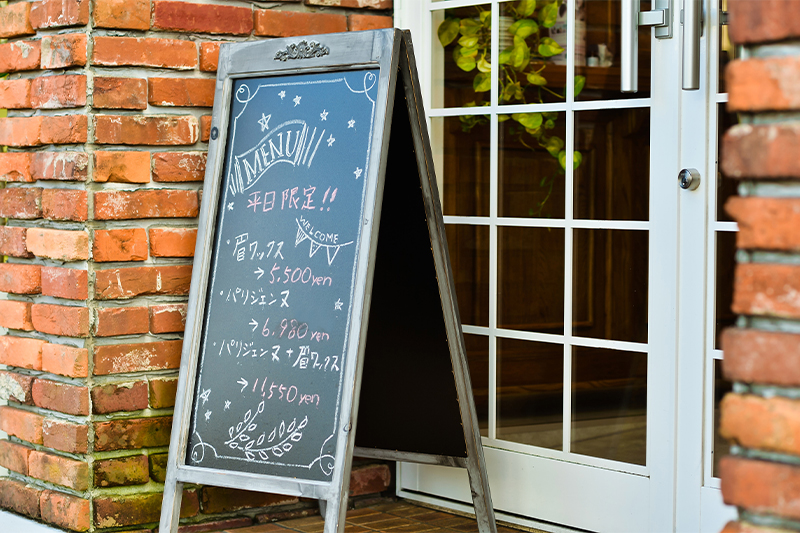 MENU
平日限定!!
WELCOME
・眉ワックス
→5,500yen
・パリジェンヌ
→6,980yen
・パリジェンヌ+眉ワックス
→11,550yen